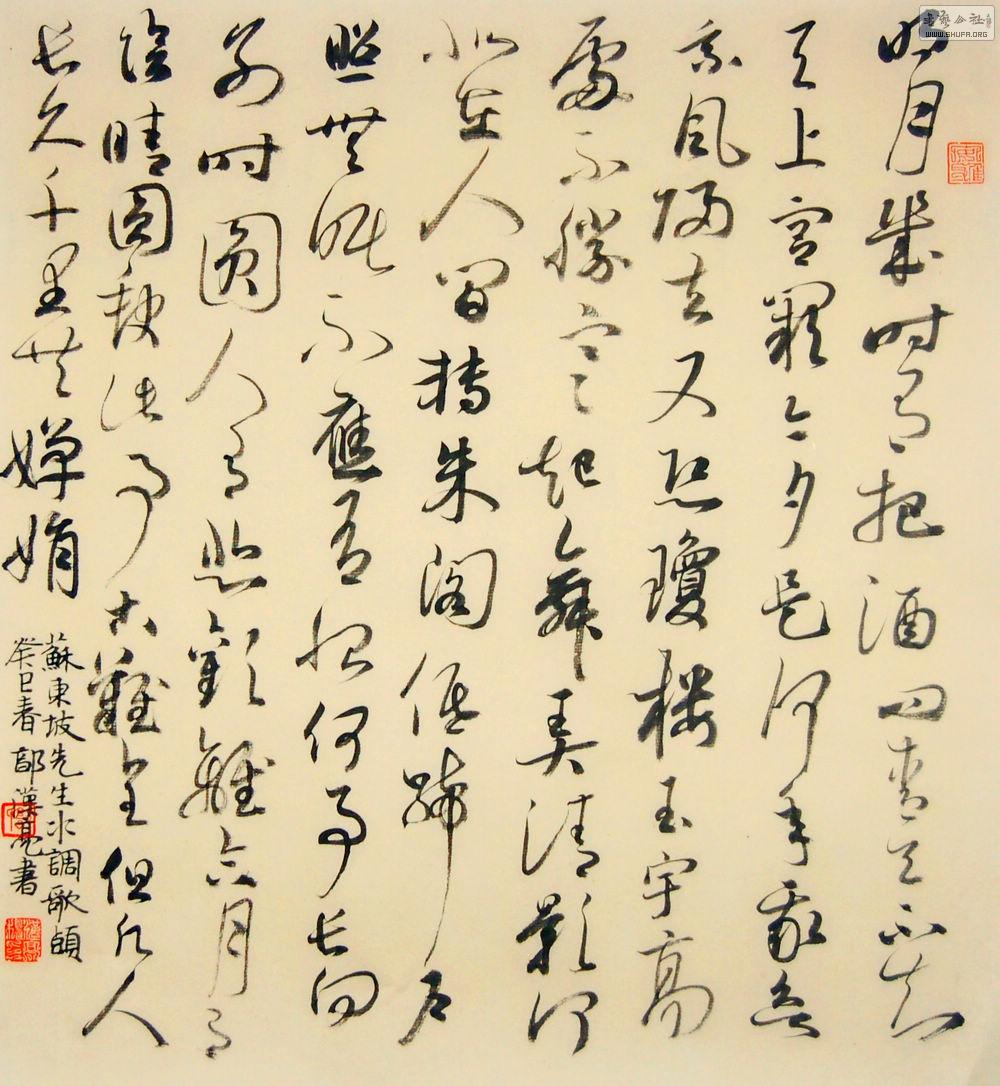 明月幾時有把酒問青天不知
天上宮闕今夕是何年我欲
乘風歸去又恐瓊樓玉宇高
處不勝寒起舞弄清影何
似在人間轉朱閣低綺戶
照無眠不應有恨何事長向
別時圓人有悲歡離合月有
陰晴圓缺此事古難全但願人
長久千里共嬋娟
蘇東坡先生水調歌頭
癸巳春漢亮書
书艺公社
WWW.SHUFA.ORG